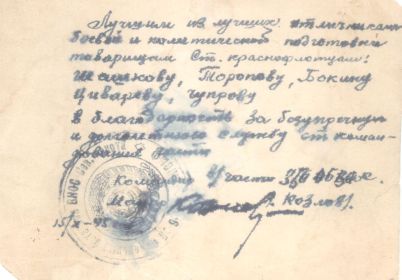 Лучшим из лучших отличникам
боевой и политической подготовки
товарищам Ст. краснофлотцам:
Шашкову, Торопову, Бокину
Циварёву, Чупрову
в благодарность за безупречную
и долголетнюю службу от коман-
дования части
Командир в/части
Май Козлов).
15/X-45
ВНОС